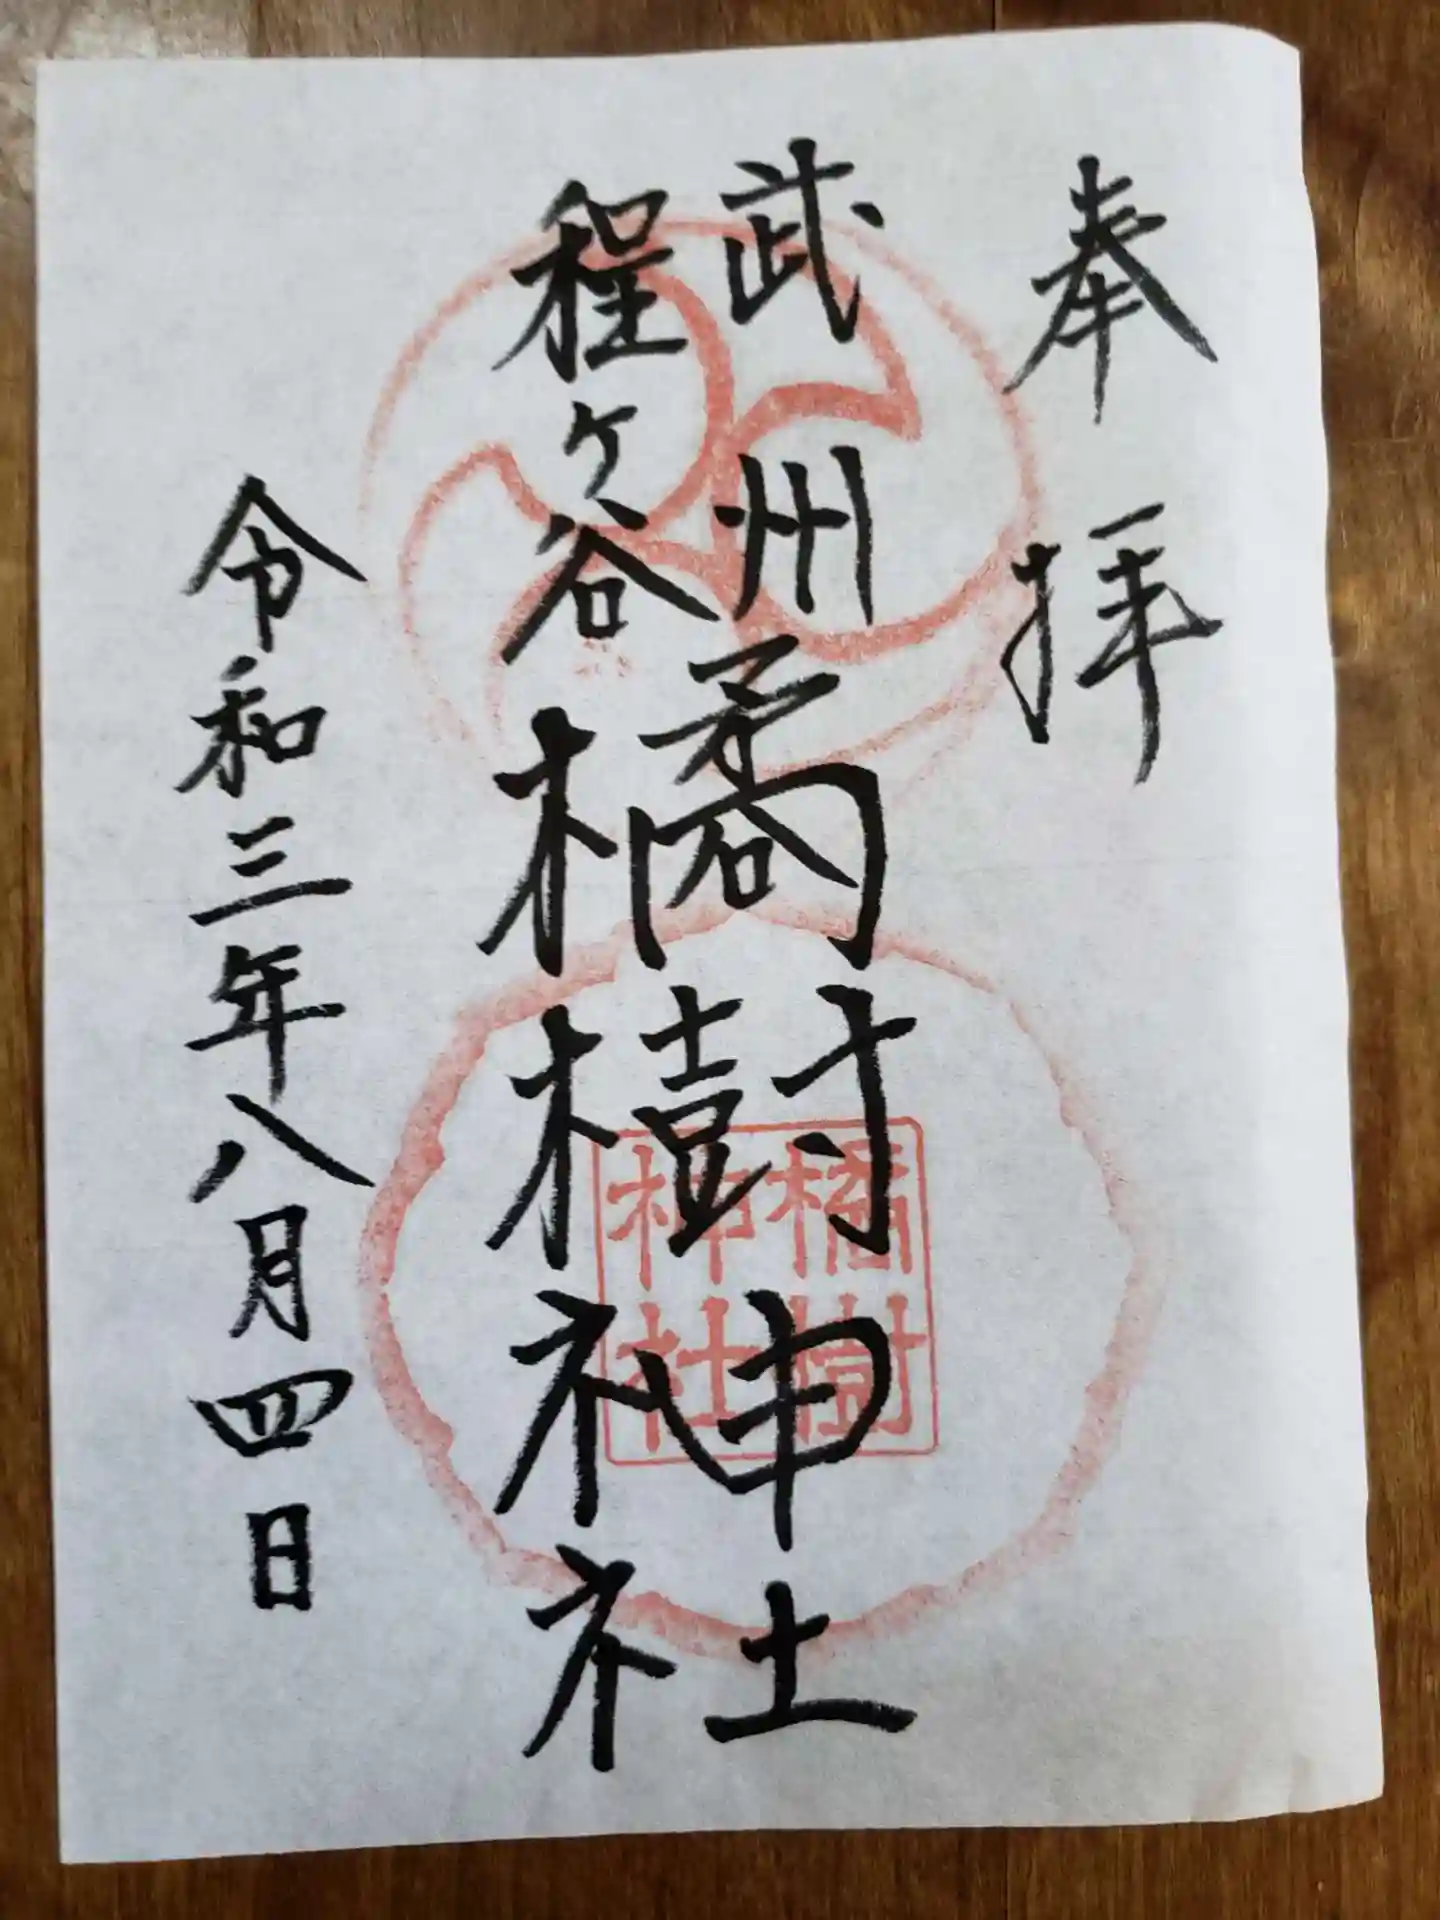 奉拝
武州
程ヶ谷
橘樹神社
橘樹
神社
令和三年八月四日